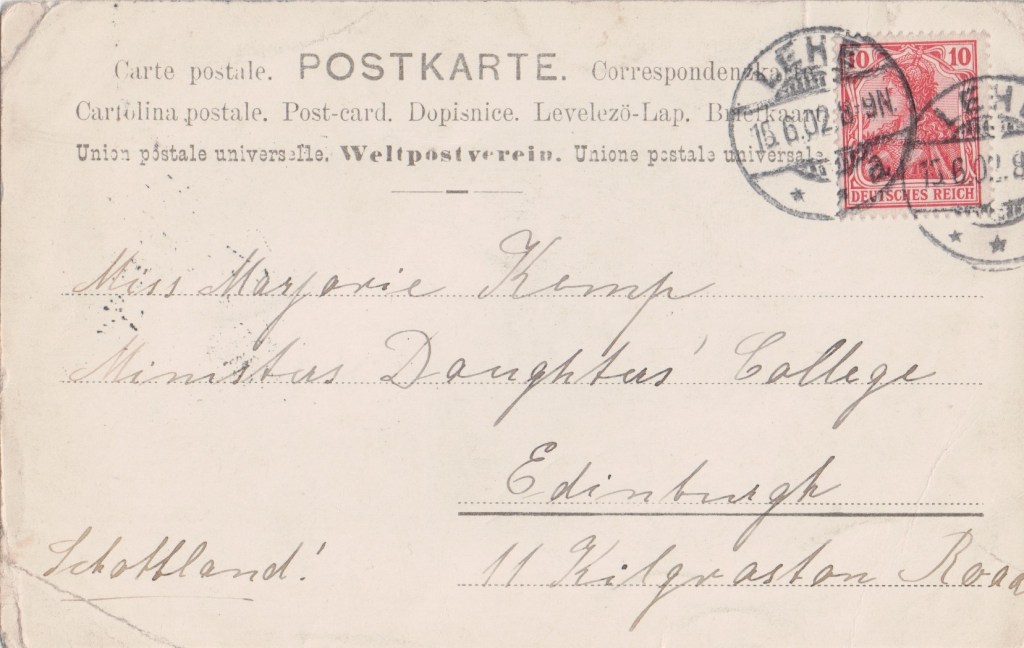 Carte postale. POSTKARTE. Correspondenzkarte.
Cartolina postale. Post-card. Dopisnice. Levelező-Lap. Briefkaart.
Union postale universelle. Weltpostverein. Unione postale universale.
LEHE
15.6.02.8-9N
a
10 10
DEUTSCHES REICH
LEHE
15.6.02.8
Miss Marjorie Kemp
Ministers Daughters' College
Edinburgh
Schottland!
11 Kilgraston Road